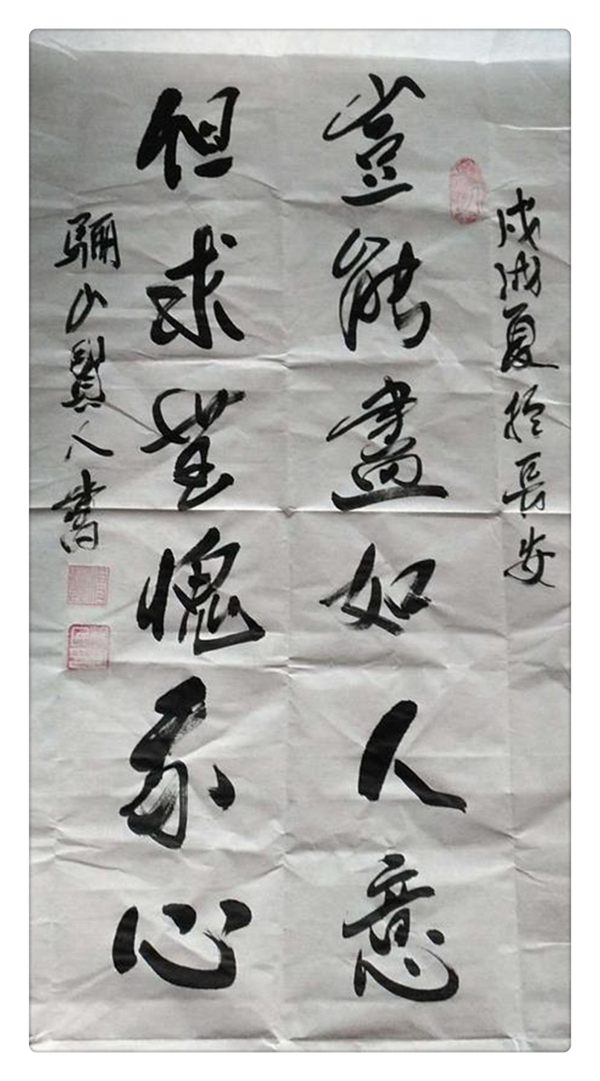 戊夏於長安
豈能盡如人意
但求無愧我心
骊山賢人書